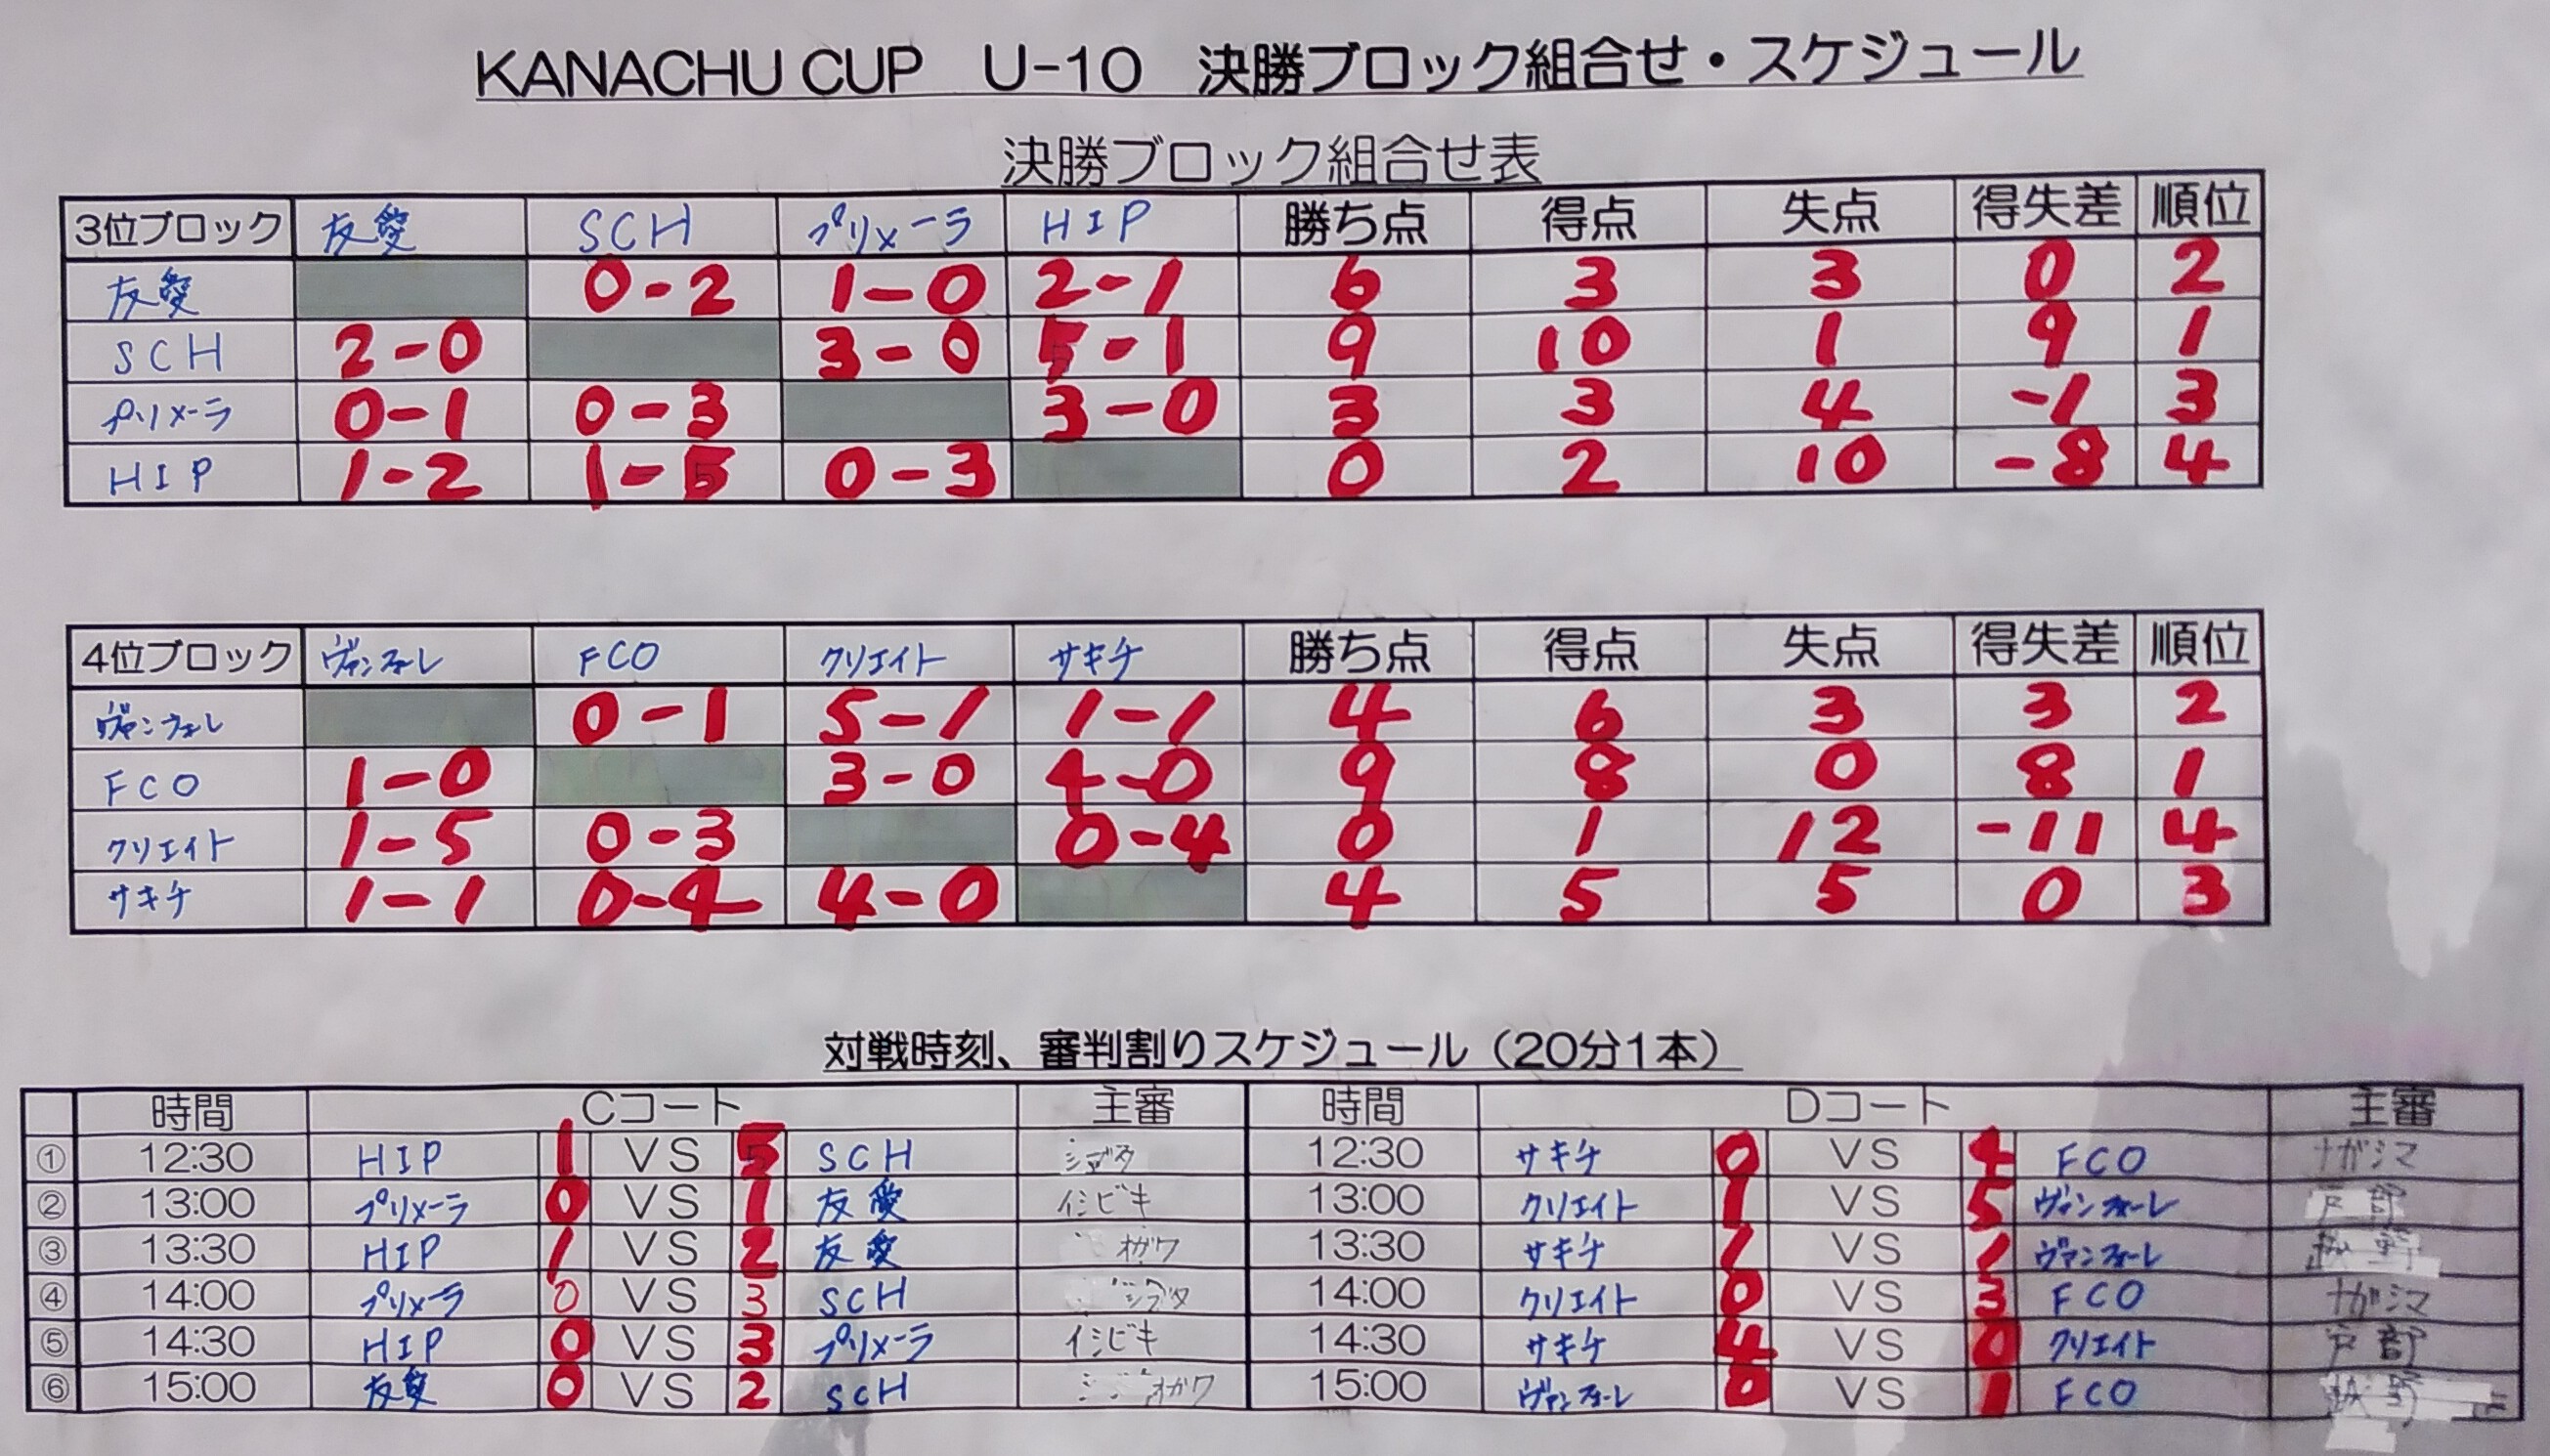 KANACHU CUP U-10 決勝ブロック組合せ・スケジュール
決勝ブロック組合せ表
3位ブロック 友愛 SCH プリメーラ HIP 勝ち点 得点 失点 得失差 順位
友愛 0-2 1-0 2-1 6 3 3 0 2
SCH 2-0 3-0 5-1 9 10 1 9 1
プリメーラ 0-1 0-3 3-0 3 3 4 -1 3
HIP 1-2 1-5 0-3 0 2 10 -8 4
4位ブロック ヴァンフォーレ FCO クリエイト サキチ 勝ち点 得点 失点 得失差 順位
ヴァンフォーレ 0-1 5-1 1-1 4 6 3 3 2
FCO 1-0 3-0 4-0 9 8 0 8 1
クリエイト 1-5 0-3 0-4 0 1 12 -11 4
サキチ 1-1 0-4 4-0 4 5 5 0 3
対戦時刻、審判割りスケジュール（20分1本）
時間 Cコート 主審 時間 Dコート 主審
① 12:30 HIP 1 VS 5 SCH 12:30 サキチ 0 VS 4 FCO ナガシマ
② 13:00 プリメーラ 0 VS 1 友愛 イシビキ 13:00 クリエイト 1 VS 5 ヴァンフォーレ 戸部
③ 13:30 HIP 1 VS 2 友愛 オガワ 13:30 サキチ 1 VS 1 ヴァンフォーレ
④ 14:00 プリメーラ 0 VS 3 SCH 14:00 クリエイト 0 VS 3 FCO ナガシマ
⑤ 14:30 HIP 0 VS 3 プリメーラ イシビキ 14:30 サキチ 4 VS 0 クリエイト 戸部
⑥ 15:00 友愛 0 VS 2 SCH オガワ 15:00 ヴァンフォーレ 0 VS 1 FCO